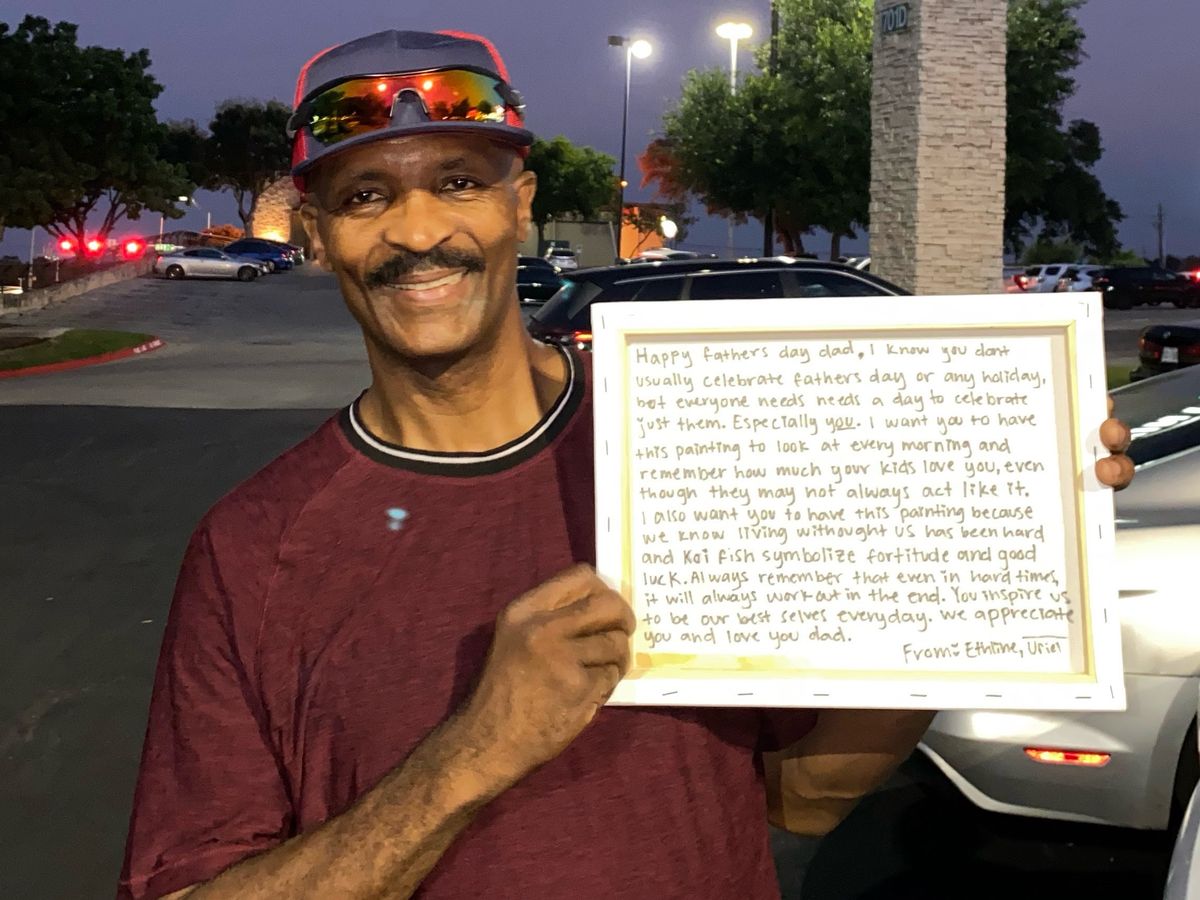 701D
Happy fathers day dad. I know you dont
usually celebrate fathers day or any holiday,
but everyone needs needs a day to celebrate
just them. Especially you. I want you to have
this painting to look at every morning and
remember how much your kids love you, even
though they may not always act like it.
I also want you to have this painting because
we know living withought us has been hard
and Koi fish symbolize fortitude and good
luck. Always remember that even in hard times,
it will always work out in the end. You inspire us
to be our best selves everyday. We appreciate
you and love you dad.
From: Uriel